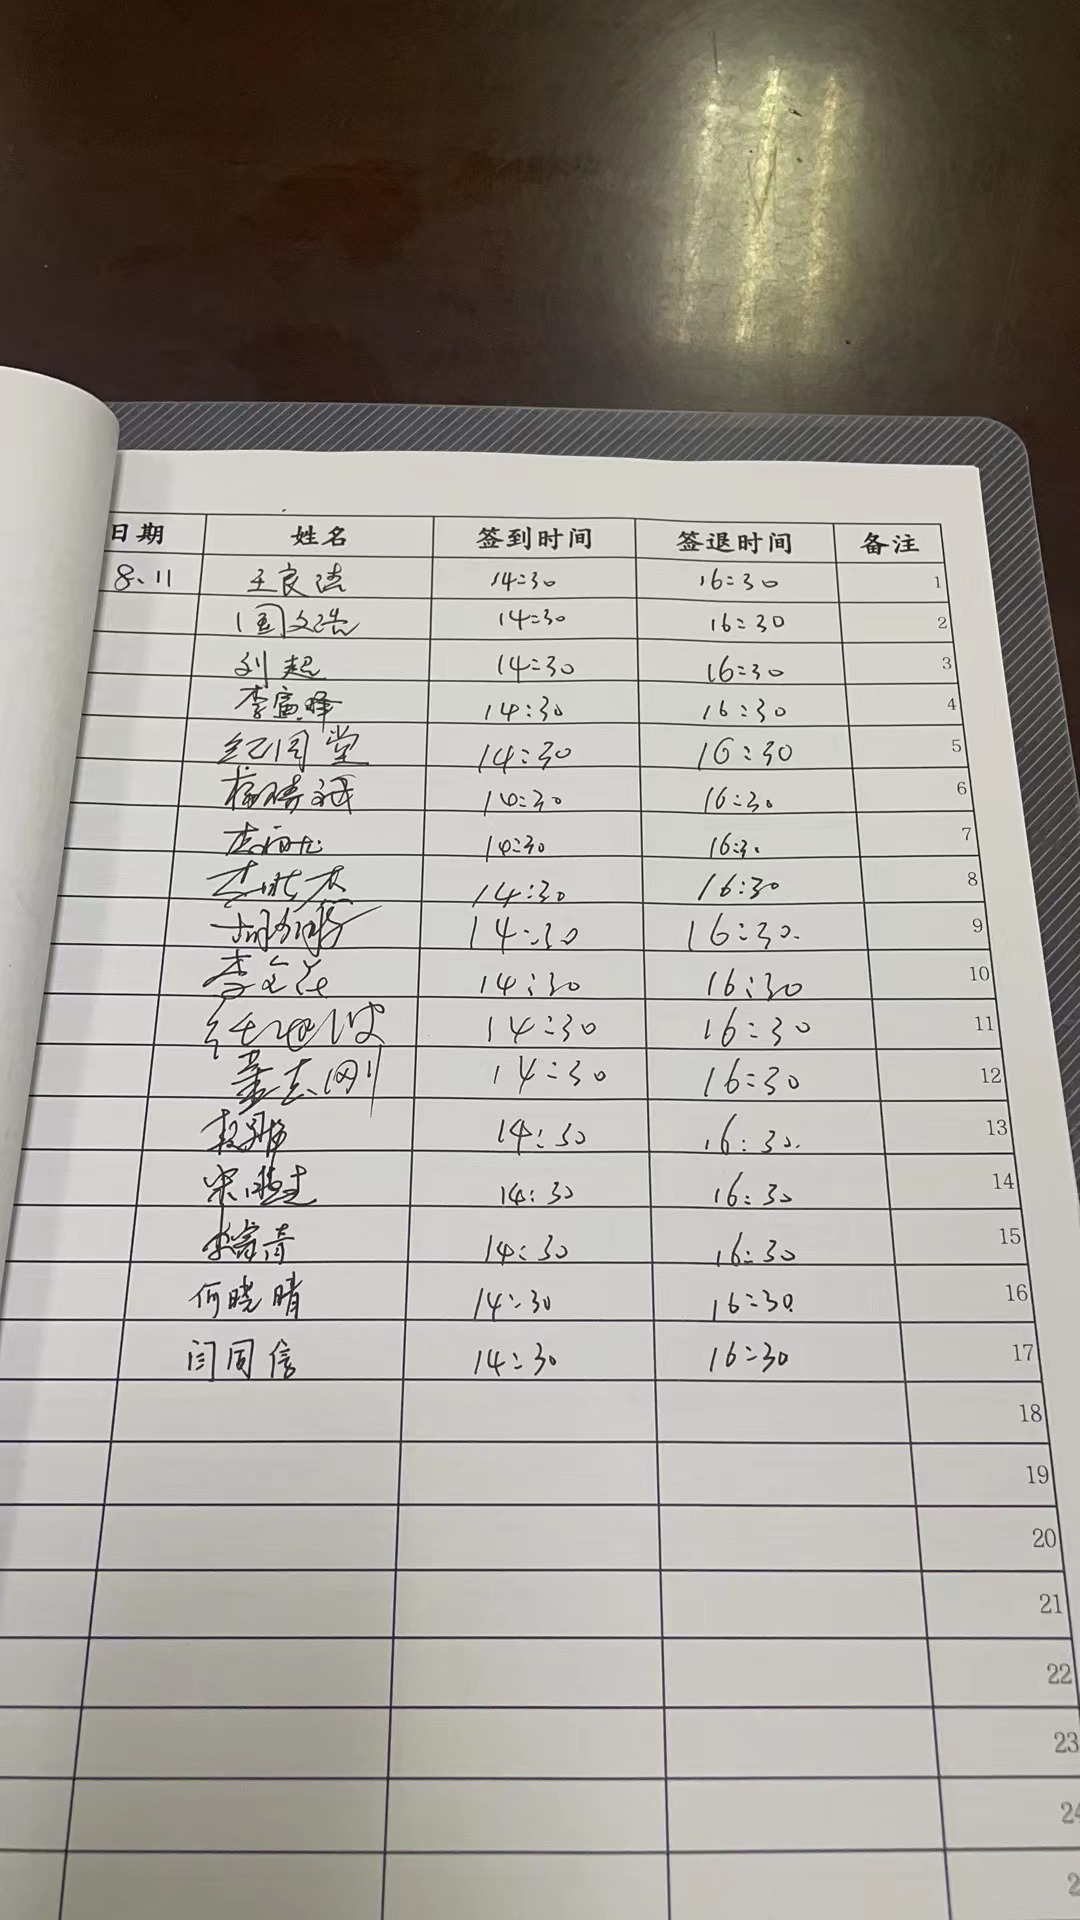 日期 姓名 签到时间 签退时间 备注
8、11 王良洁 14:30 16:30 1
14:30 16:30 2
刘超 14:30 16:30 3
李寅峰 14:30 16:30 4
纪同堂 14:30 16:30 5
14:30 16:30 6
14:30 16:30 7
14:30 16:30 8
14:30 16:30. 9
李 14:30 16:30 10
14:30 16:30 11
董志刚 14:30 16:30 12
14:30 16:30. 13
宋 14:30 16:30 14
青 14:30 16:30 15
何晓晴 14:30 16:30 16
闫同信 14:30 16:30 17
18
19
20
21
22
23